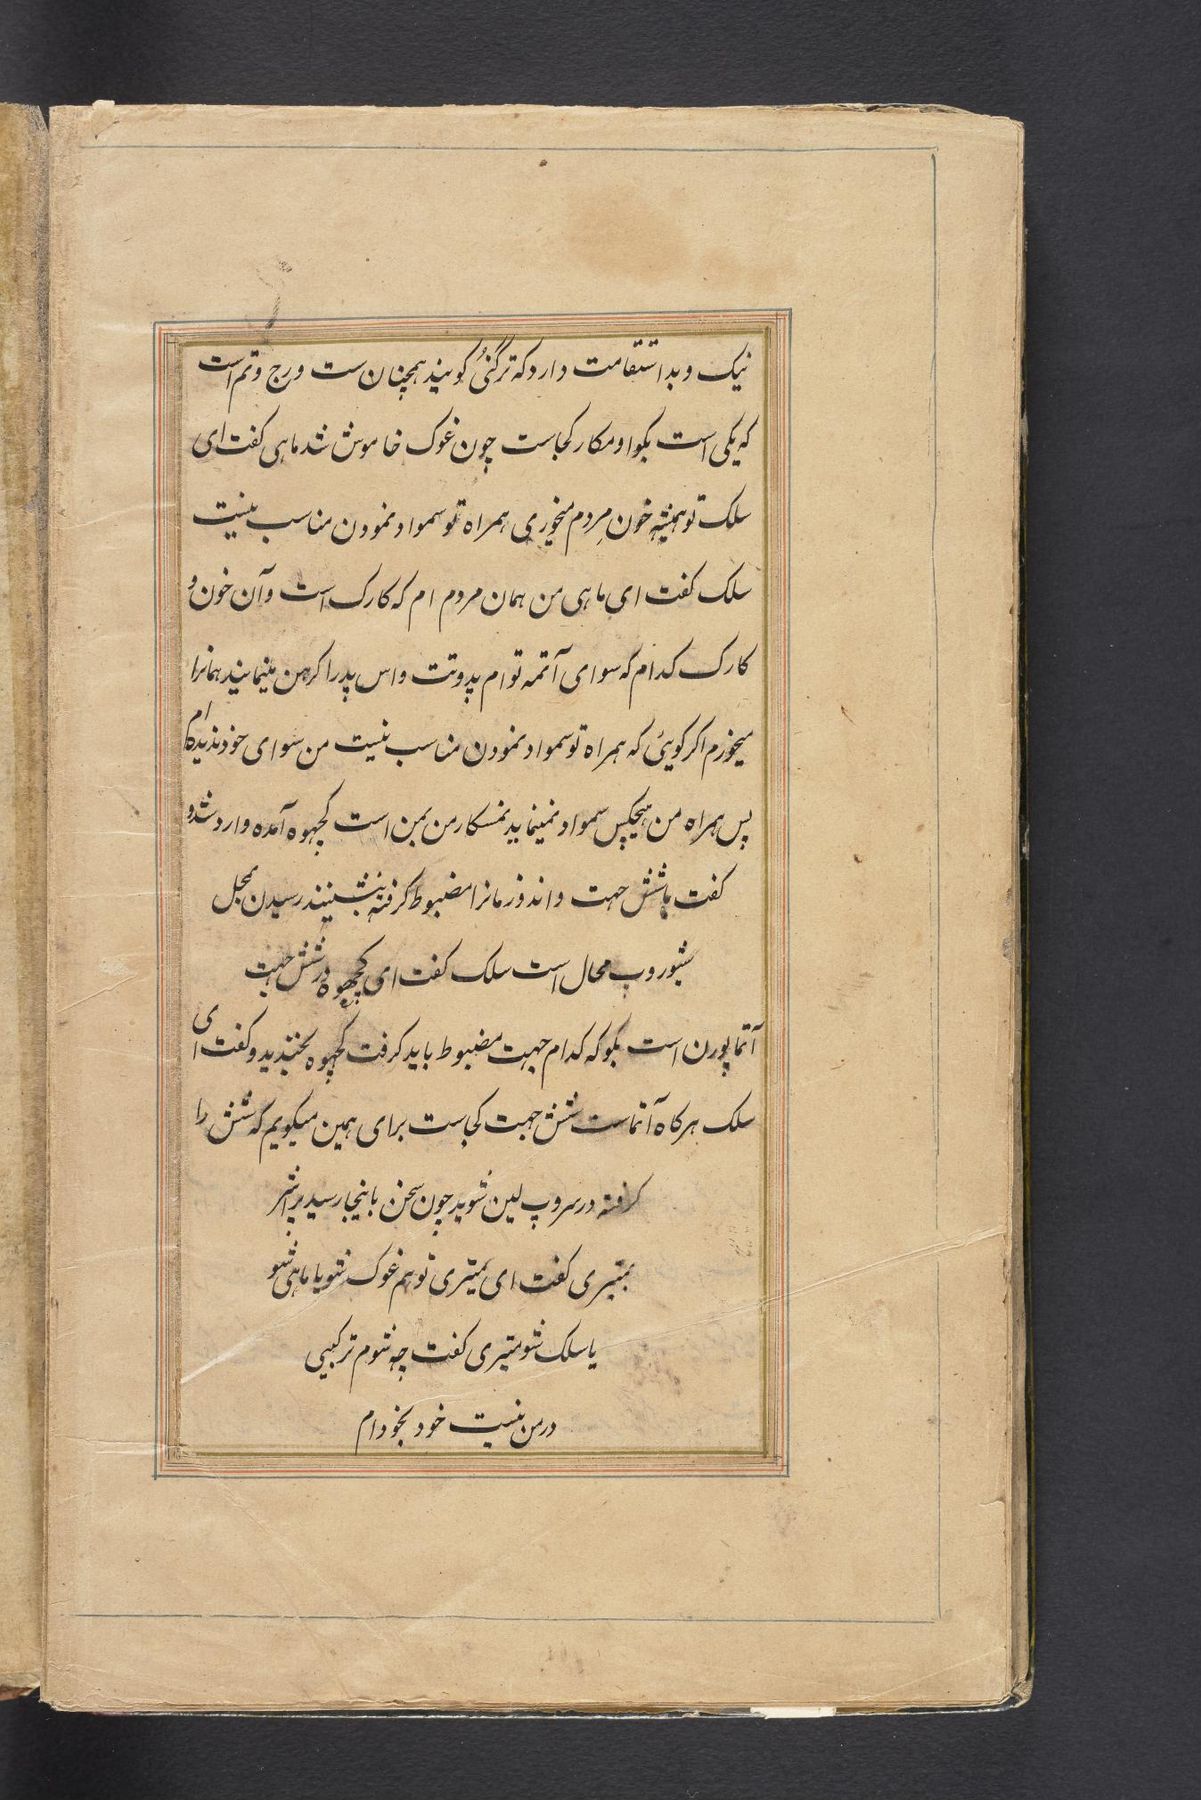 نیک و بد استقامت دارد که ترگنی کویند همچنان ست ورج وتم است
که یکی است بکوا ومکار کجاست چون غوک خاموش شد ماهی کفت ای
سلک تو همیشه خون مردم میخوری همراه تو سمواد نمودن مناسب نیست
سلک کفت ای ماهی من همان مردم ام که کارک است وآن خون و
کارک کدام که سوای آتمه توام پدوتت واس پدرا کرهن مینمایند همانرا
میخورم اکر کویئی که همراه تو سمواد نمودن مناسب نیست من سوای خود ندیده ام
پس همراه من هیچکس سمواد نمینماید نمسکار من بمن است کچهوه آمده وارد شد و
کفت پا شش جهت واندوز مانرا مضبوط کرفته بنشینند رسیدن بمحل
شیوروپ محال است سلک کفت ای کچهوه در شش جهت
آتما پورن است بکو که کدام جهت مضبوط باید کرفت کچهوه بخندید و کفت ای
سلک هرکاه آتماست شش جهت کجاست برای همین میکویم که شش را
کرفته در سروپ لین شوید چون سخن باینجا رسید پراشر
بمتیری کفت ای میتری تو هم غوک شو یا ماهی شو
یا سلک شو میتری کفت چه شوم ترکیبی
در من نیست خود بخود ام